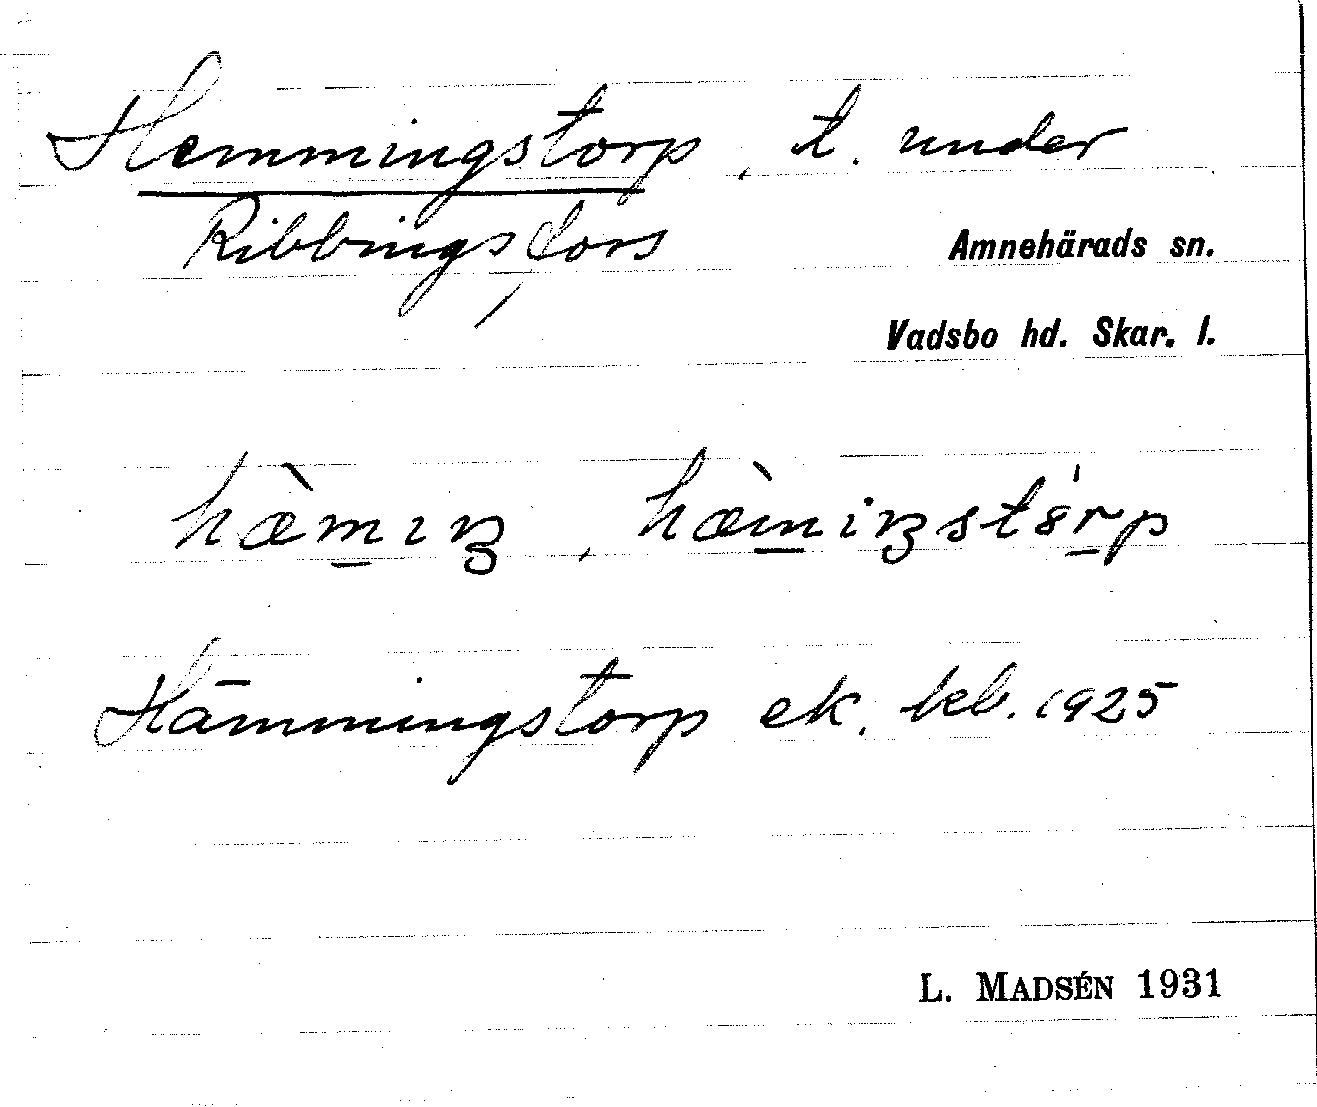 Hemmingstorp, t. under
Ribbingsfors
Amnehärads sn.
Vadsbo hd. Skar. l.
hæ̀m̱ıŋ, hæ̀m̱iŋstɵ́ṟp
Hämmingstorp ek. kb. 1925
L. MADSÉN 1931